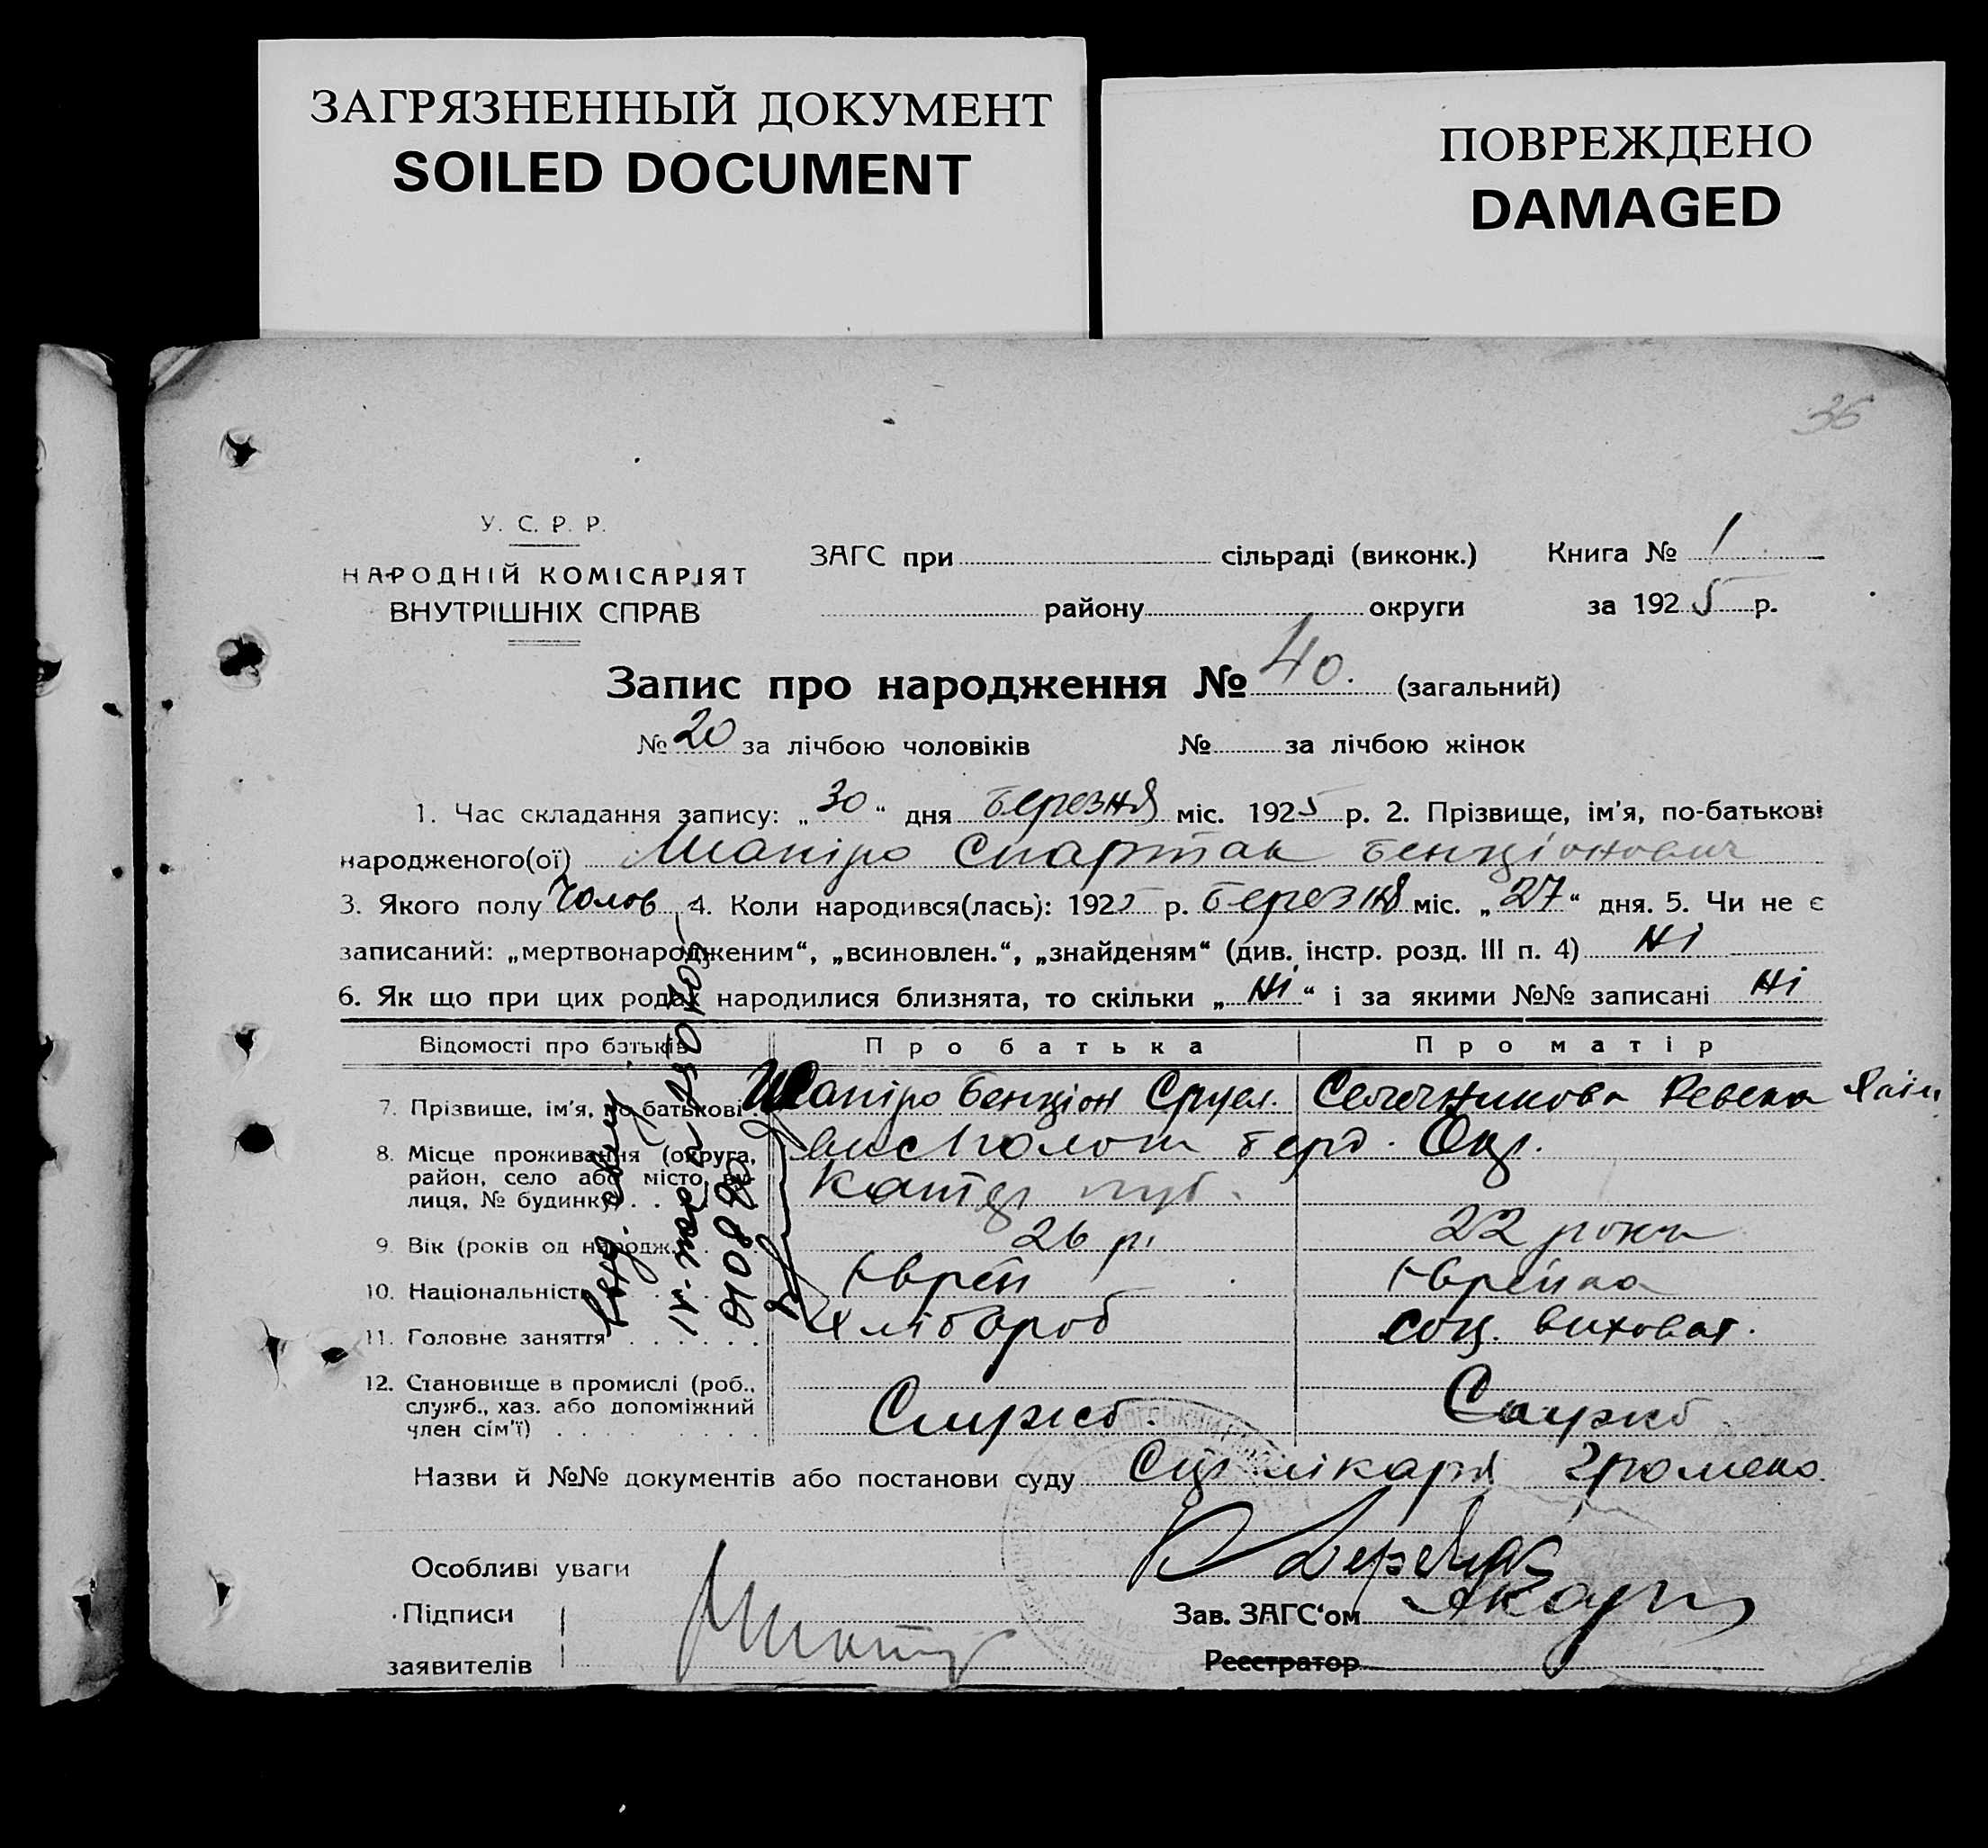 ЗАГРЯЗНЕННЫЙ ДОКУМЕНТ
SOILED DOCUMENT
ПОВРЕЖДЕНО
DAMAGED
36
У. С. Р. Р.
НАРОДНІЙ КОМІСАРІЯТ
ВНУТРІШНІХ СПРАВ
ЗАГС при сільраді (виконк.) Книга № 1
району округи за 1925 р.
Запис про народження № 40. (загальний)
№ 20 за лічбою чоловіків № за лічбою жінок
1. Час складання запису: „30“ дня Березня міс. 1925 р. 2. Прізвище, ім'я, по-батькові
народженого(ої) Шапіро Спартак Бенціонович
3. Якого полу Чолов 4. Коли народився(лась): 1925 р. Березня міс. „27“ дня. 5. Чи не є
записаний: „мертвонародженим“, „всиновлен.“, „знайденям“ (див. інстр. розд. III п. 4) Ні
6. Як що при цих родах народилися близнята, то скільки „Ні“ і за якими №№ записані Ні
Відомості про батьків Про батька Про матір
7. Прізвище, ім'я, по батькові Шапіро Бенціон Сруел. Ревека
8. Місце проживання (округа, Берд. Окр.
район, село або місто, ву-
лиця, № будинку)
9. Вік (років од народж.) 26 р. 22 роки
10. Національність Єврей Єврейка
11. Головне заняття Хлібороб соц. виховат.
12. Становище в промислі (роб.,
служб., хаз. або допоміжний
член сім'ї) Служб. Служб
Назви й №№ документів або постанови суду лікаря
Особливі уваги
Підписи
заявителів
Зав. ЗАГС‘ом
Реєстратор